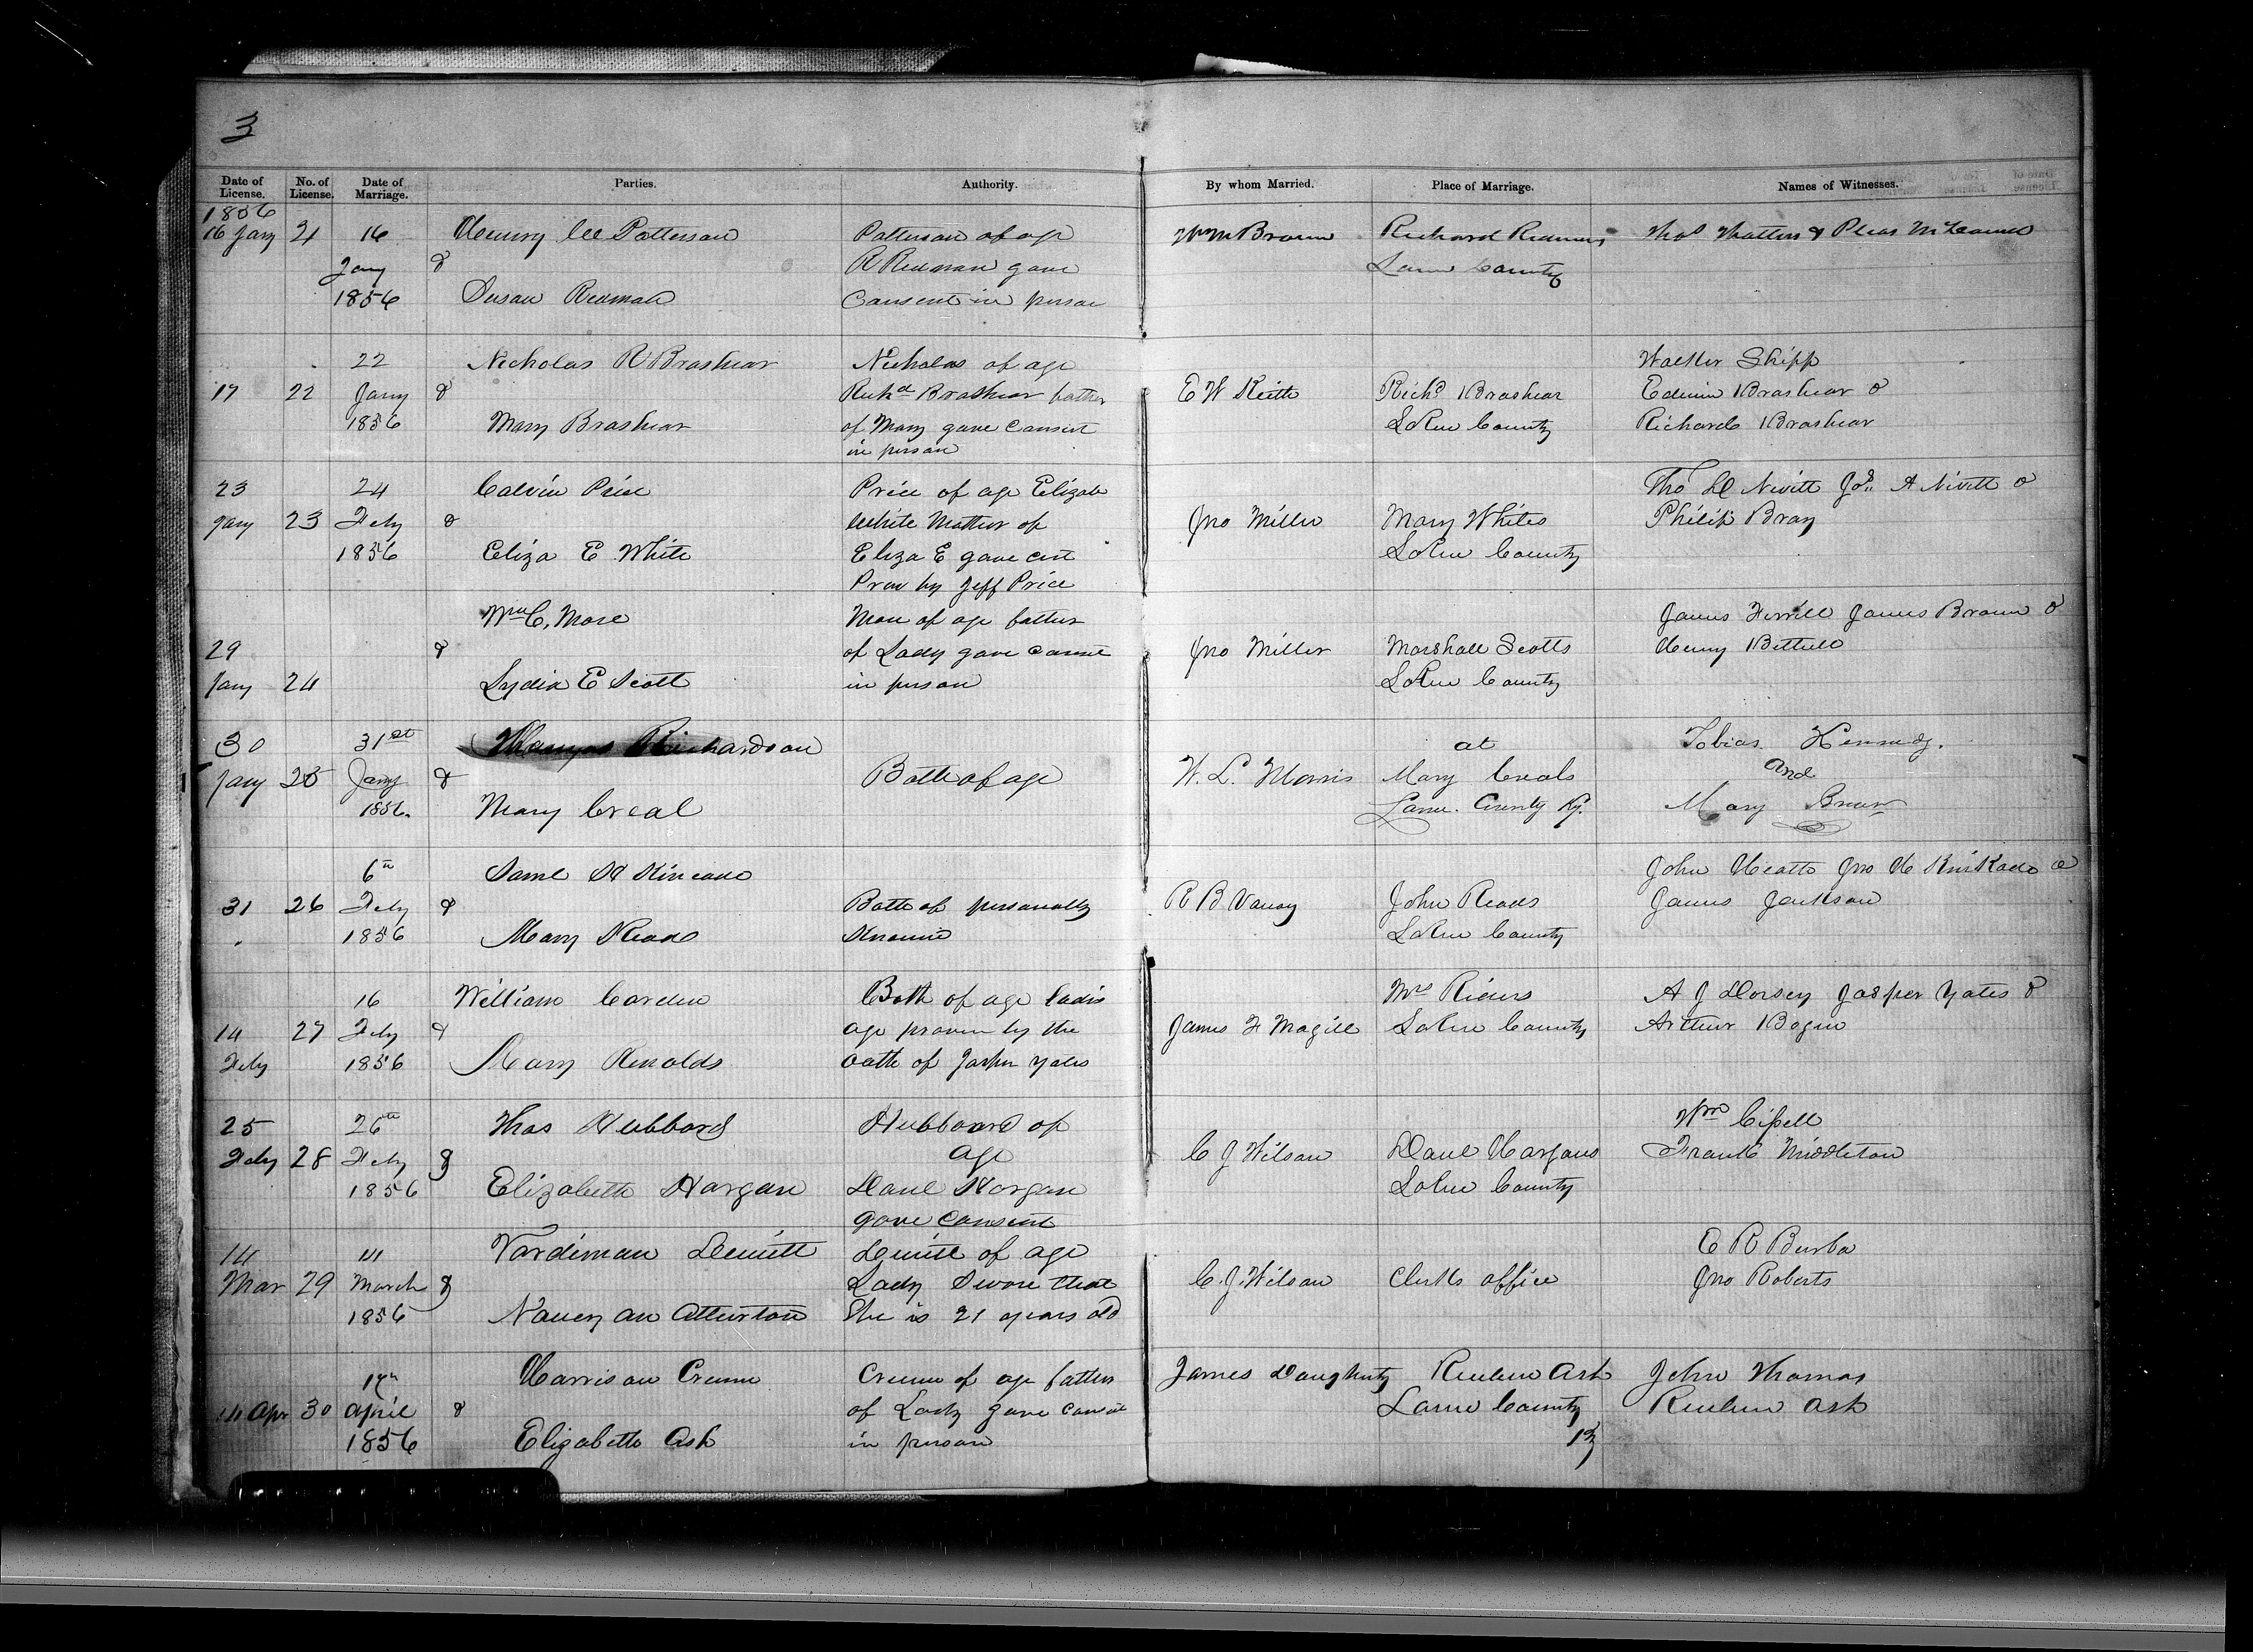 3
Date of License. No. of License. Date of Marriage. Parties. Authority. By whom Married. Place of Marriage. Names of Witnesses.
1856
16 Jany 21 16 Henry Patterson Patterson of age Wm Brown Richard Redmans Thos &
Jany & R Redman gave Larue County
1856 Susan Redman Consent in person
22 Nicholas R Brashear Nicholas of age Walter Shipp
17 22 Jany & Richd Brashear father E W Keith Richd Brashear Edwin Brashear &
1856 Mary Brashear of Mary gave Consent LaRue County Richard Brashear
in person
23 24 Calvin Price Price of age Elizabe Tho Nevitt Jos A Nevitt &
Jany 23 Feby & White Mother of Jno Miller Mary Whites Philip Bray
1856 Eliza E White Eliza E gave cert LaRue County
Prov by Jeff Price
Wm C, More More of age father James Ferrill James Brown &
29 & of Lady gave consent Jno Miller Marshall Scotts Henry
Jany 24 Lydia E Scott in person LaRue County
30 31st Richardson at Tobias Kennedy.
Jany 25 Jany & Both of age W. L. Morris Mary Creals and
1856. Mary Creal Larue County Ky. Mary Brown
6th Saml Kincade John Jno &
31 26 Feby & Both of personally R B Vancy John Reads James Jackson
1856 Mary Read Known LaRue County
16 William Carden Both of age ladis Mrs A J Dorsey Jasper Yates &
14 27 Feby & age proven by the James F Magill LaRue County Arthur
Feby 1856 Mary Renolds oath of Jasper Yates
25 26th Thos Hubbard Hubbard of Wm Cissell
Feby 28 Feby & age C J Wilson Danl Hargans Frank Middleton
1856 Elizabeth Hargan Danl Hargan LaRue County
gave Consent
14 14 Vardiman Dewitt Dewitt of age E R Burba
Mar 29 March & Lady Swore that C. J. Wilson Clerks office Jno Roberts
1856 Nancy an Atherton She is 21 years old
17th Harrison Crume Crume of age father James Daugherty Reuben Ash John Thomas
14 Apr 30 April & of Lady gave consent Larue County Reuben Ash
1856 Elizabeth Ash in person